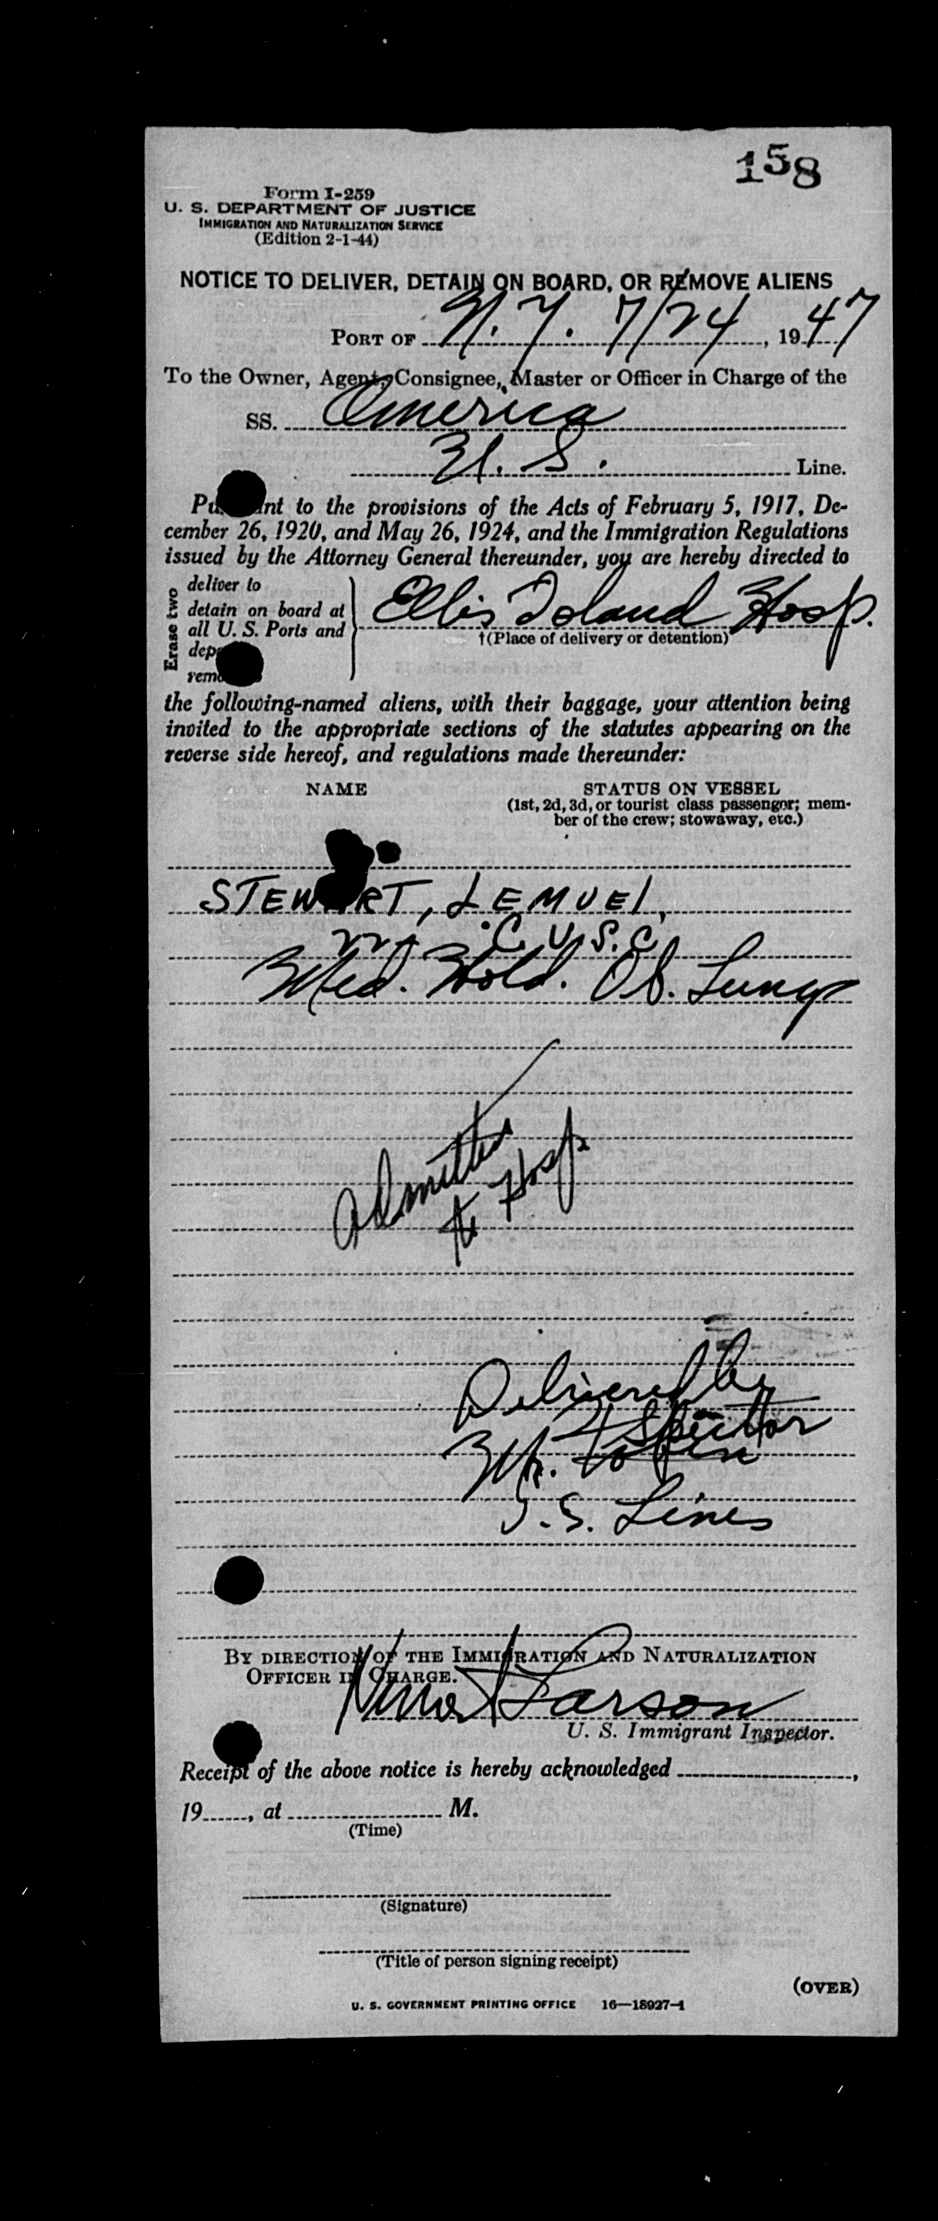 158
Form I-259
U. S. DEPARTMENT OF JUSTICE
IMMIGRATION AND NATURALIZATION SERVICE
(Edition 2-1-44)
NOTICE TO DELIVER, DETAIN ON BOARD, OR REMOVE ALIENS
PORT OF N. Y. 7/24, 1947
To the Owner, Agent, Consignee, Master or Officer in Charge of the
SS. America
U. S. Line.
Pu nt to the provisions of the Acts of February 5, 1917, De-
cember 26, 1920, and May 26, 1924, and the Immigration Regulations
issued by the Attorney General thereunder, you are hereby directed to
Erase two
deliver to
detain on board at
all U. S. Ports and
dep
remo
Ellis Island Hosp.
†(Place of delivery or detention)
the following-named aliens, with their baggage, your attention being
invited to the appropriate sections of the statutes appearing on the
reverse side hereof, and regulations made thereunder:
NAME STATUS ON VESSEL
(1st, 2d, 3d, or tourist class passenger; mem-
ber of the crew; stowaway, etc.)
STEWART, LEMUEL,
C U.S.C
Med. Hold. Ob. Lungs
Admitted
to Hosp
Delivered by
Inspector
Mr.
S.S. Lines
BY DIRECTION OF THE IMMIGRATION AND NATURALIZATION
OFFICER IN CHARGE.
Larson
U. S. Immigrant Inspector.
Receipt of the above notice is hereby acknowledged ,
19 , at M.
(Time)
(Signature)
(Title of person signing receipt)
(OVER)
U. S. GOVERNMENT PRINTING OFFICE 16—18927-1